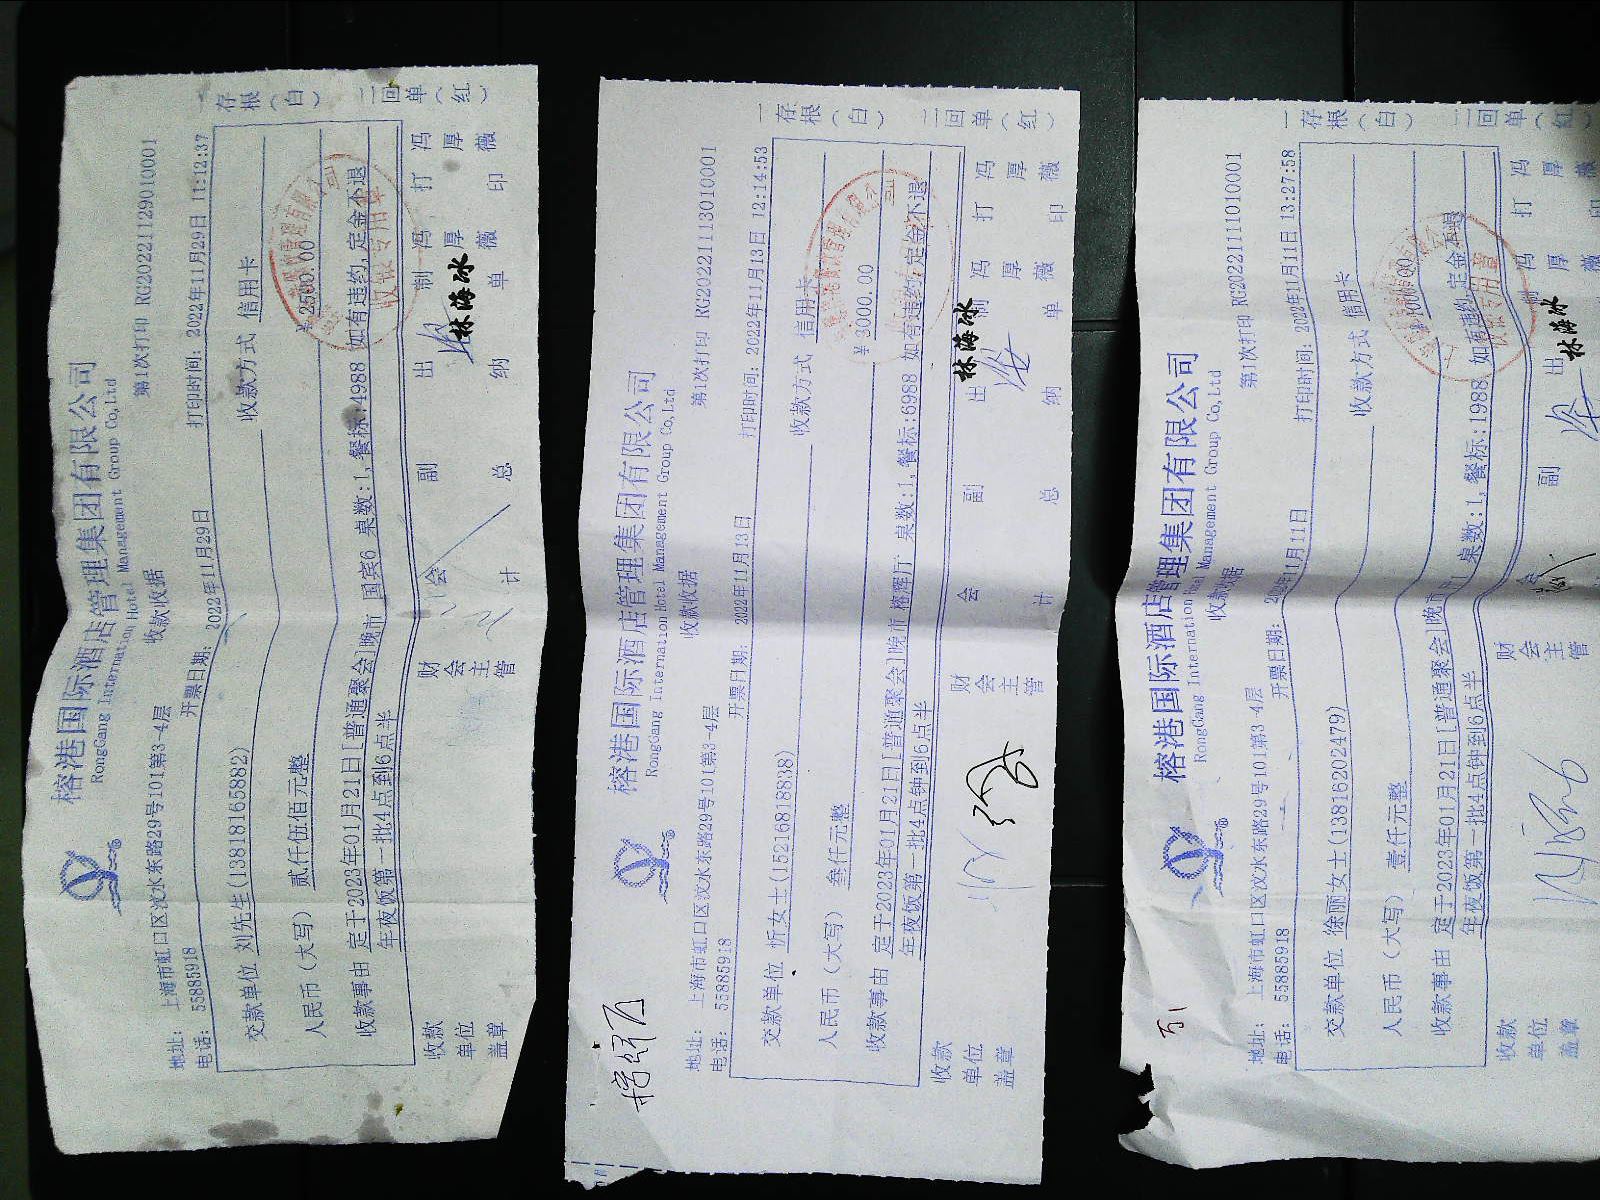 榕港国际酒店管理集团有限公司
RongGang International Hotel Management Group Co,Ltd
第1次打印 RG20221129010001
收款收据
地址: 上海市虹口区汶水东路29号101第3-4层
电话: 55885918
开票日期: 2022年11月29日
打印时间: 2022年11月29日 11:12:37
交款单位 刘先生(13818165882)
收款方式 信用卡
人民币(大写) 贰仟伍佰元整
2500.00
收款事由 定于2023年01月21日[普通聚会]晚市 国宾6 桌数:1,餐标:4988 如有违约,定金不退
年夜饭第一批4点到6点半
收款单位盖章
财会主管
副总
会计
出纳
林海冰
制单 冯厚薇
打印 冯厚薇
一存根(白)
二回单(红)
收银专用章
榕港国际酒店管理集团有限公司
RongGang International Hotel Management Group Co,Ltd
第1次打印 RG20221113010001
收款收据
地址: 上海市虹口区汶水东路29号101第3-4层
电话: 55885918
开票日期: 2022年11月13日
打印时间: 2022年11月13日 12:14:53
交款单位 忻女士(15216818838)
收款方式 信用卡
人民币(大写) 叁仟元整
¥ 3000.00
收款事由 定于2023年01月21日[普通聚会]晚市 榕辉厅 桌数:1,餐标:6988 如有违约,定金不退
年夜饭第一批4点钟到6点半
收款单位盖章
财会主管
副总
会计
出纳
林海冰
制单 冯厚薇
打印 冯厚薇
一存根(白)
二回单(红)
榕港国际酒店管理集团有限公司
RongGang International Hotel Management Group Co,Ltd
第1次打印 RG20221111010001
收款收据
地址: 上海市虹口区汶水东路29号101第3-4层
电话: 55885918
开票日期: 2022年11月11日
打印时间: 2022年11月11日 13:27:58
交款单位 徐丽女士(13816202479)
收款方式 信用卡
人民币(大写) 壹仟元整
1000.00
收款事由 定于2023年01月21日[普通聚会]晚市 桌数:1,餐标:1988 如有违约,定金不退
年夜饭第一批4点钟到6点半
收款单位盖章
财会主管
副
会
出
林海冰
制 冯厚薇
打印 冯厚薇
一存根(白)
二回单(红)
收银专用章